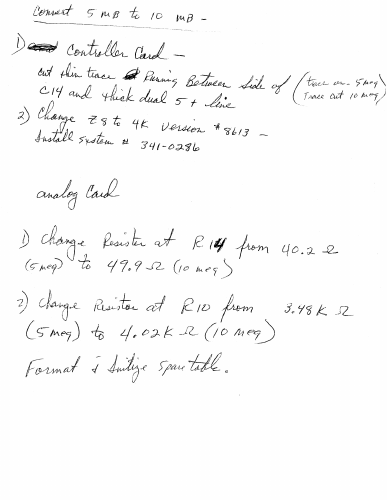 Convert 5 MB to 10 MB -
1) Controller Card -
cut thin trace Running Between side of (trace on 5meg
C14 and thick dual 5 + line Trace cut 10 meg)
2) Change Z8 to 4K version #8613 -
Install system # 341-0286
analog Card
1) Change Resister at R14 from 40.2 Ω
(5 meg) to 49.9 Ω (10 meg)
2) Change Resistor at R10 from 3.48K Ω
(5 meg) to 4.02K Ω (10 meg)
Format & Initize spare table.